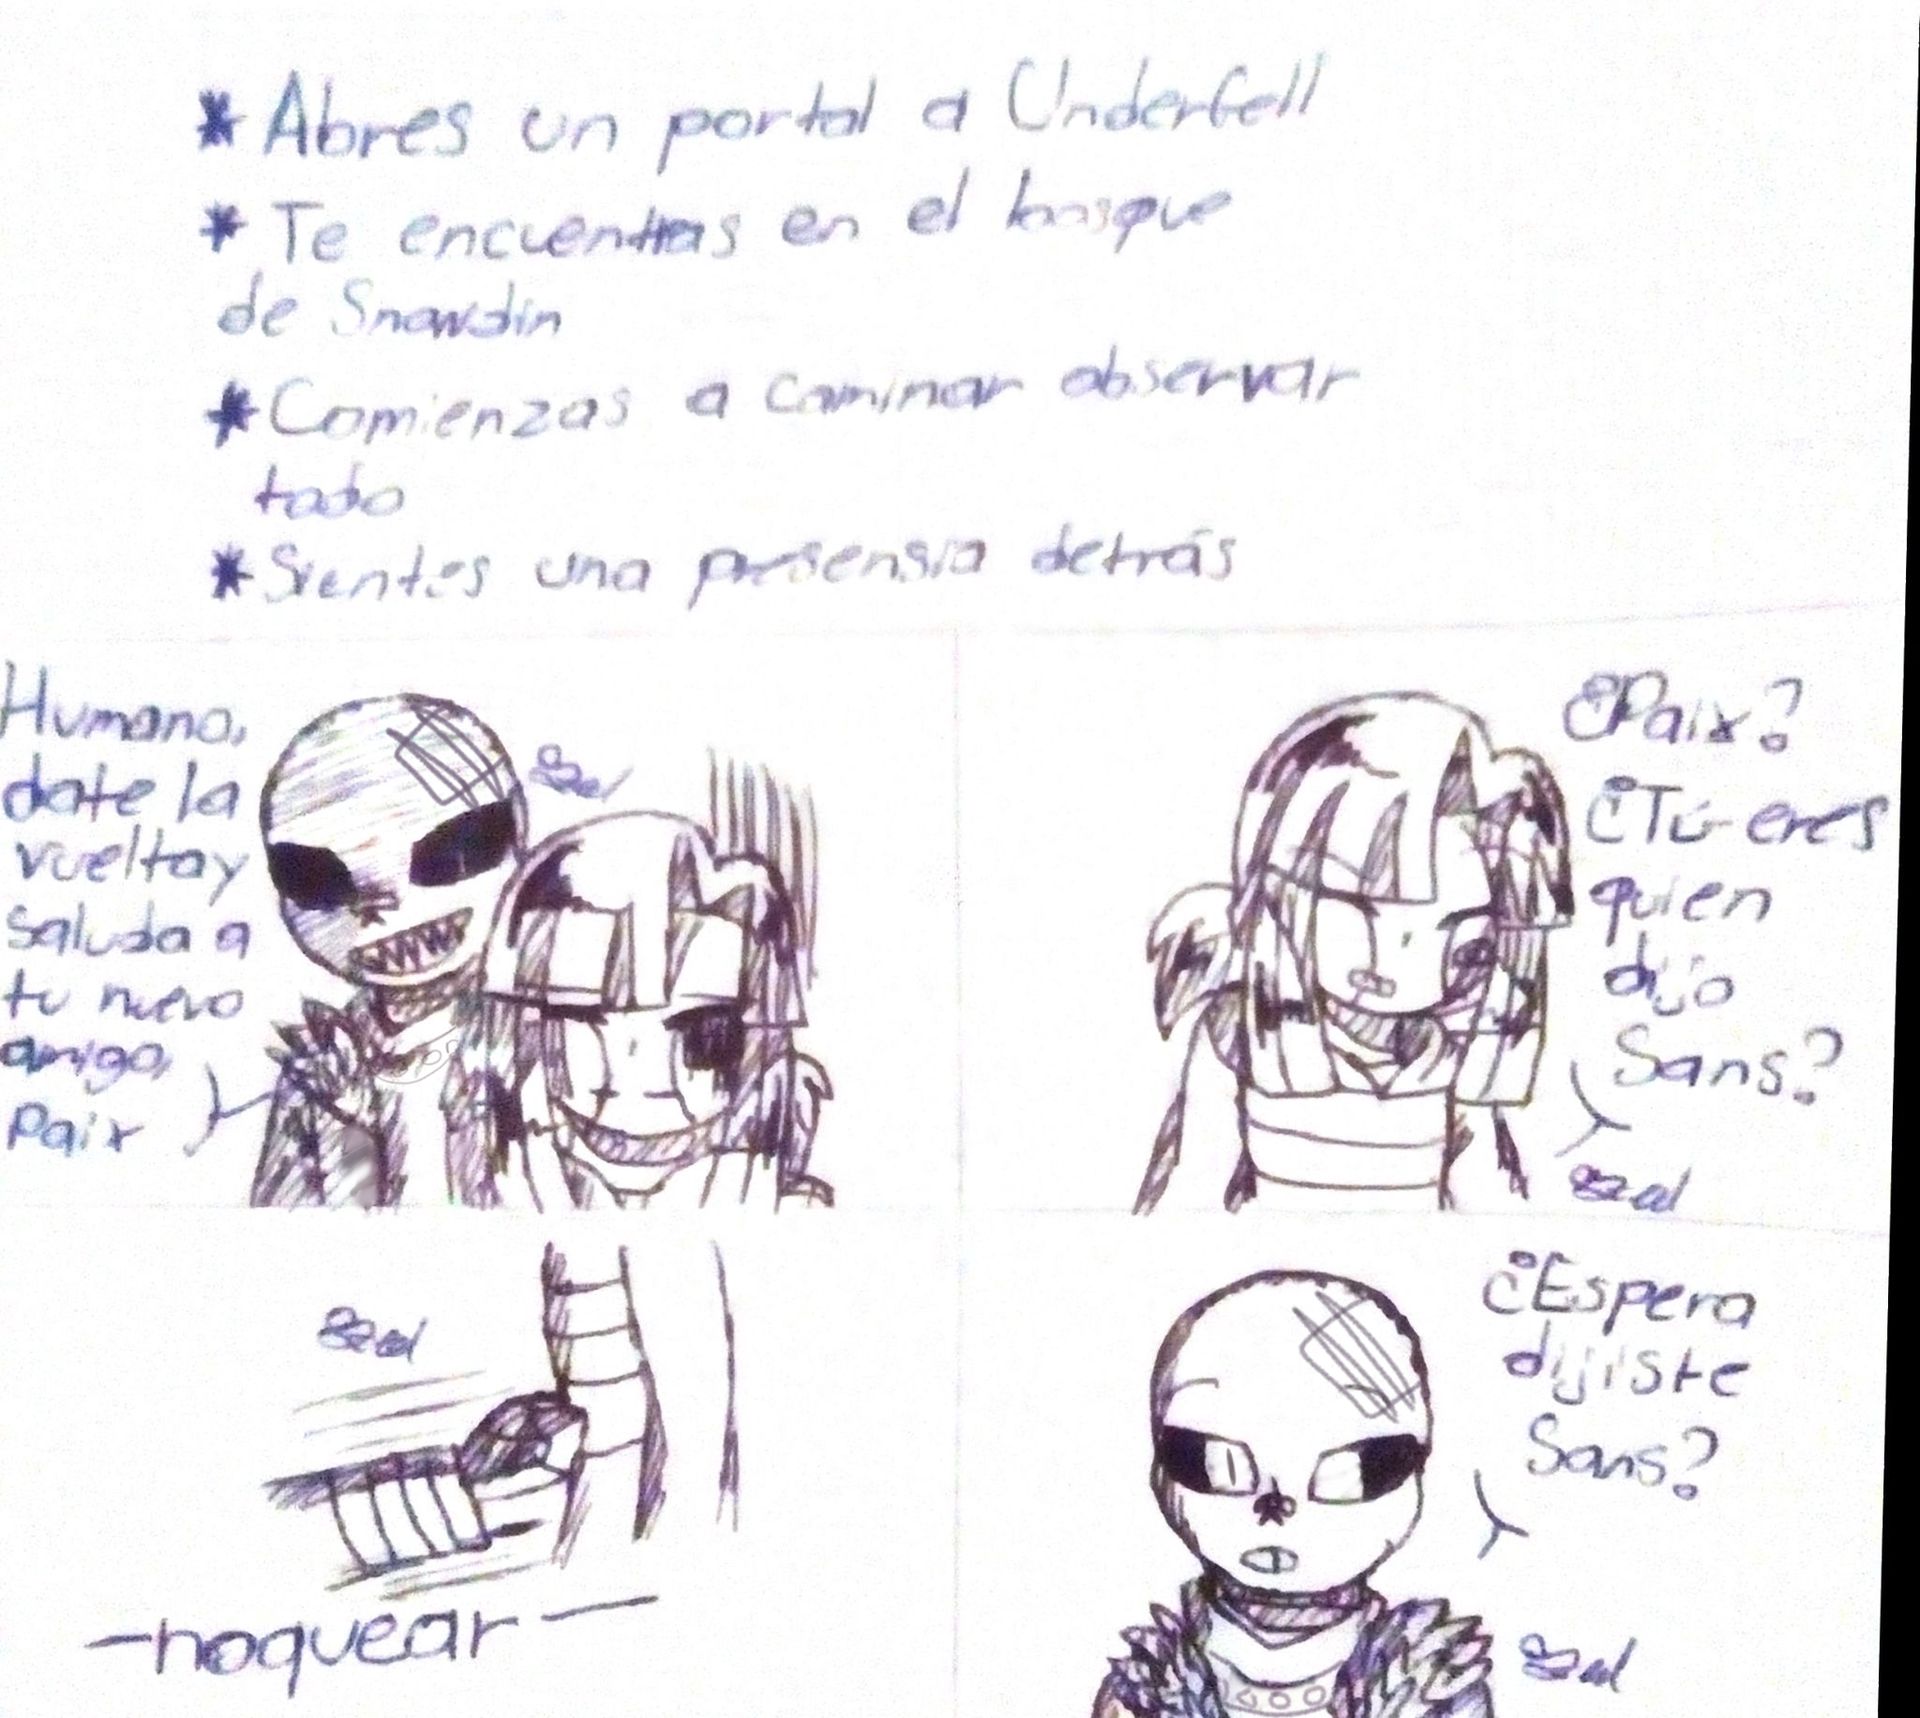 *Abres un portal a Underfell
*Te encuentras en el bosque
de Snowdin
*Comienzas a caminar observar
todo
*Sientes una presensia detrás
Humano,
date la
vuelta y
saluda a
tu nuevo
amigo,
Paix
¿Paix?
¿Tú eres
quien
dijo
Sans?
-noquear-
¿Espera
dijiste
Sans?